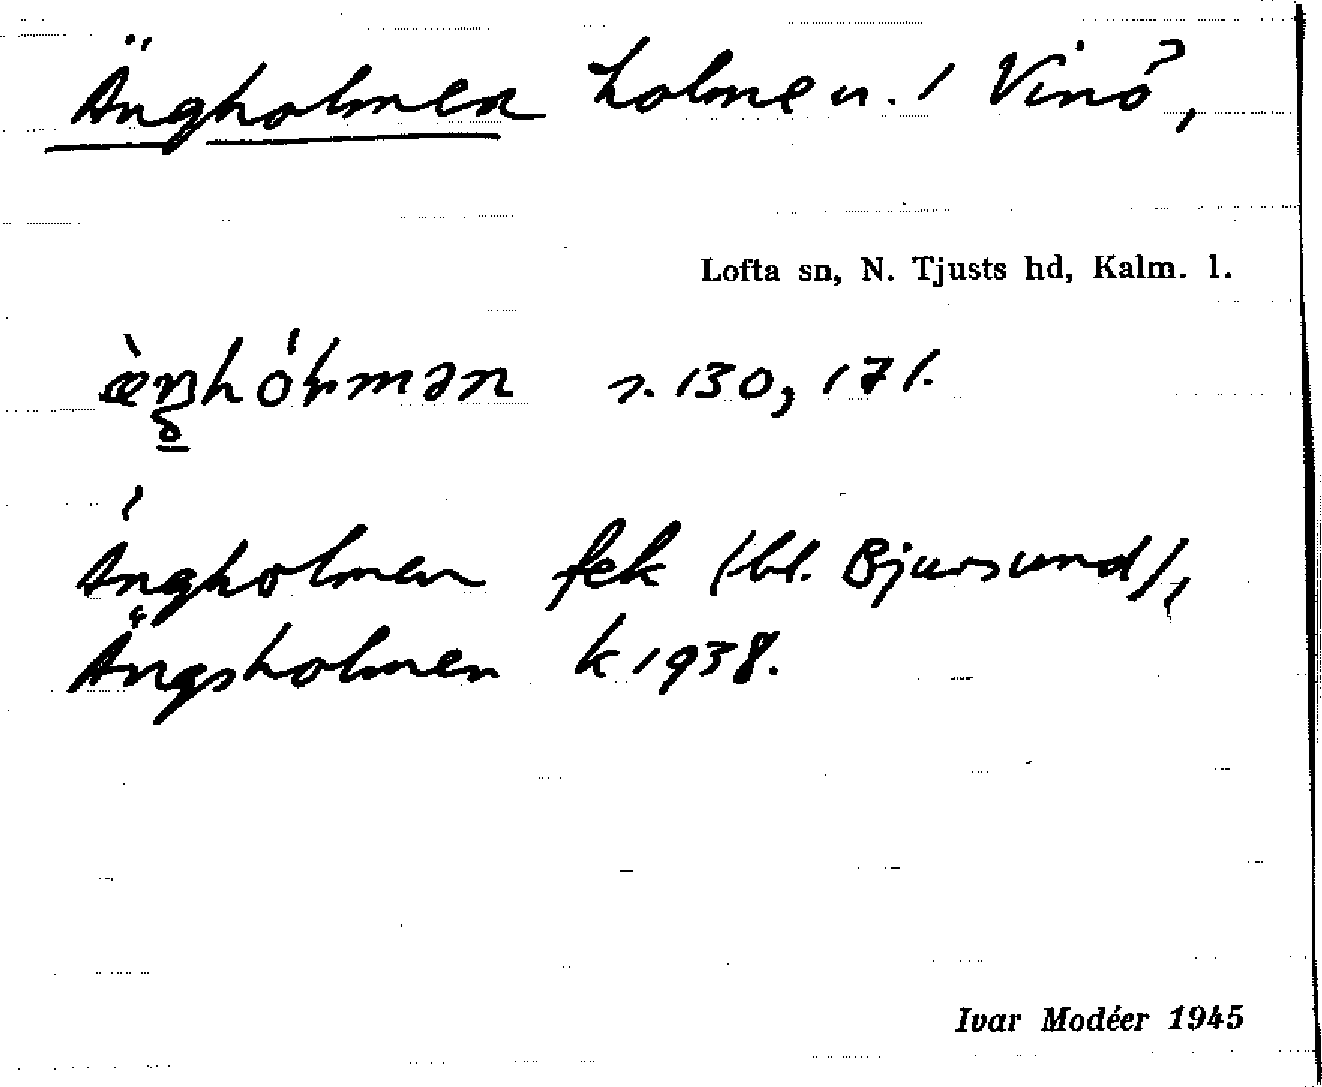 Ängholmen holme n. / Vinö,
Lofta sn, N. Tjusts hd, Kalm. l.
s. 130, 171.
Ängholmen fek (bl. Bjursund),
Ängsholmen k 1938.
Ivar Modéer 1945